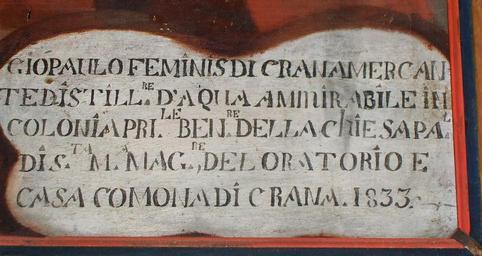 GIO PAULO FEMINIS DI CRANA MERCAN
TE DISTILL.RE D'AQUA AMMIRABILE IN
COLONIA PRI.LE BEN.RE DELLA CHIESA PA.L
DI S.TA M.A MAG.RE, DEL ORATORIO E
CASA COMONA DI CRANA. 1833.